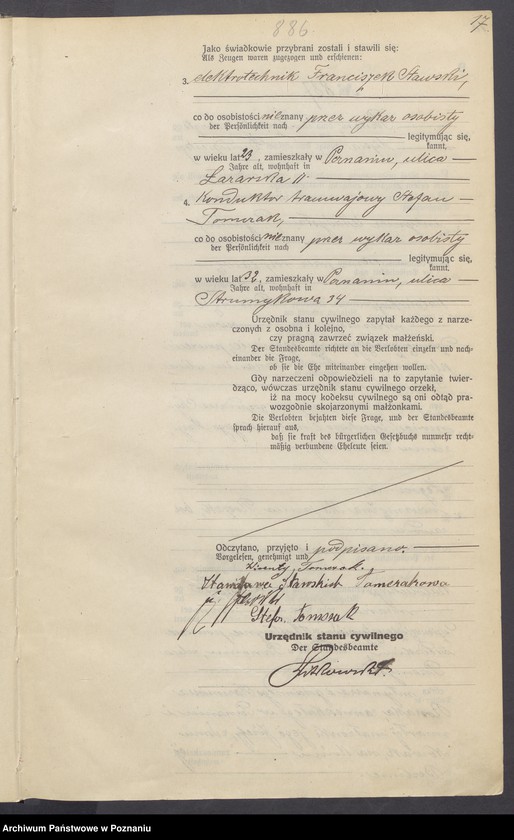 886.
17
Jako świadkowie przybrani zostali i stawili się:
Als Zeugen waren zugezogen und erschienen:
3. elektrotechnik Franciszek Stawski,
co do osobistości nie znany przez wykaz osobisty
der Persönlichkeit nach
legitymując się,
kannt,
w wieku lat 23, zamieszkały w Poznaniu, ulica
Jahre alt, wohnhaft in
Łazarska 11.
4. Konduktor tramwajowy Stefan
Tomczak,
co do osobistości nie znany przez wykaz osobisty
der Persönlichkeit nach
legitymując się,
kannt,
w wieku lat 32, zamieszkały w Poznaniu, ulica
Jahre alt, wohnhaft in
Strumykowa 34
Urzędnik stanu cywilnego zapytał każdego z narze-
czonych z osobna i kolejno,
czy pragną zawrzeć związek małżeński.
Der Standesbeamte richtete an die Verlobten einzeln und nach-
einander die Frage,
ob sie die Ehe miteinander eingehen wollen.
Gdy narzeczeni odpowiedzieli na to zapytanie twier-
dząco, wówczas urzędnik stanu cywilnego orzekł,
iż na mocy kodeksu cywilnego są oni odtąd pra-
wozgodnie skojarzonymi małżonkami.
Die Verlobten bejahten diese Frage, und der Standesbeamte
sprach hierauf aus,
daß sie kraft des bürgerlichen Gesetzbuchs nunmehr recht-
mäßig verbundene Eheleute seien.
Odczytano, przyjęto i podpisano.
Vorgelesen, genehmigt und
Tomczak.
Stawskich Tomczakowa
Stef. Tomczak
Urzędnik stanu cywilnego
Der Standesbeamte
Archiwum Państwowe w Poznaniu